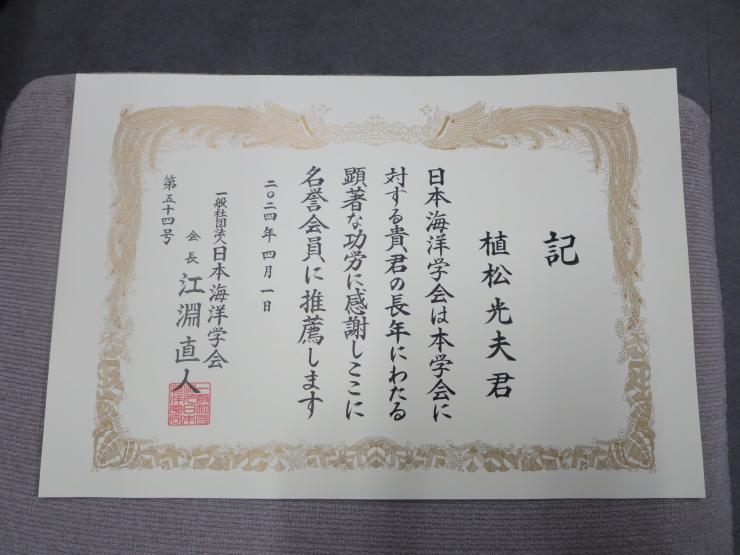 記
植松光夫君
日本海洋学会は本学会に
対する貴君の長年にわたる
顕著な功労に感謝しここに
名誉会員に推薦します
二〇二四年四月一日
一般社団法人日本海洋学会
会長 江淵直人
第五十四号